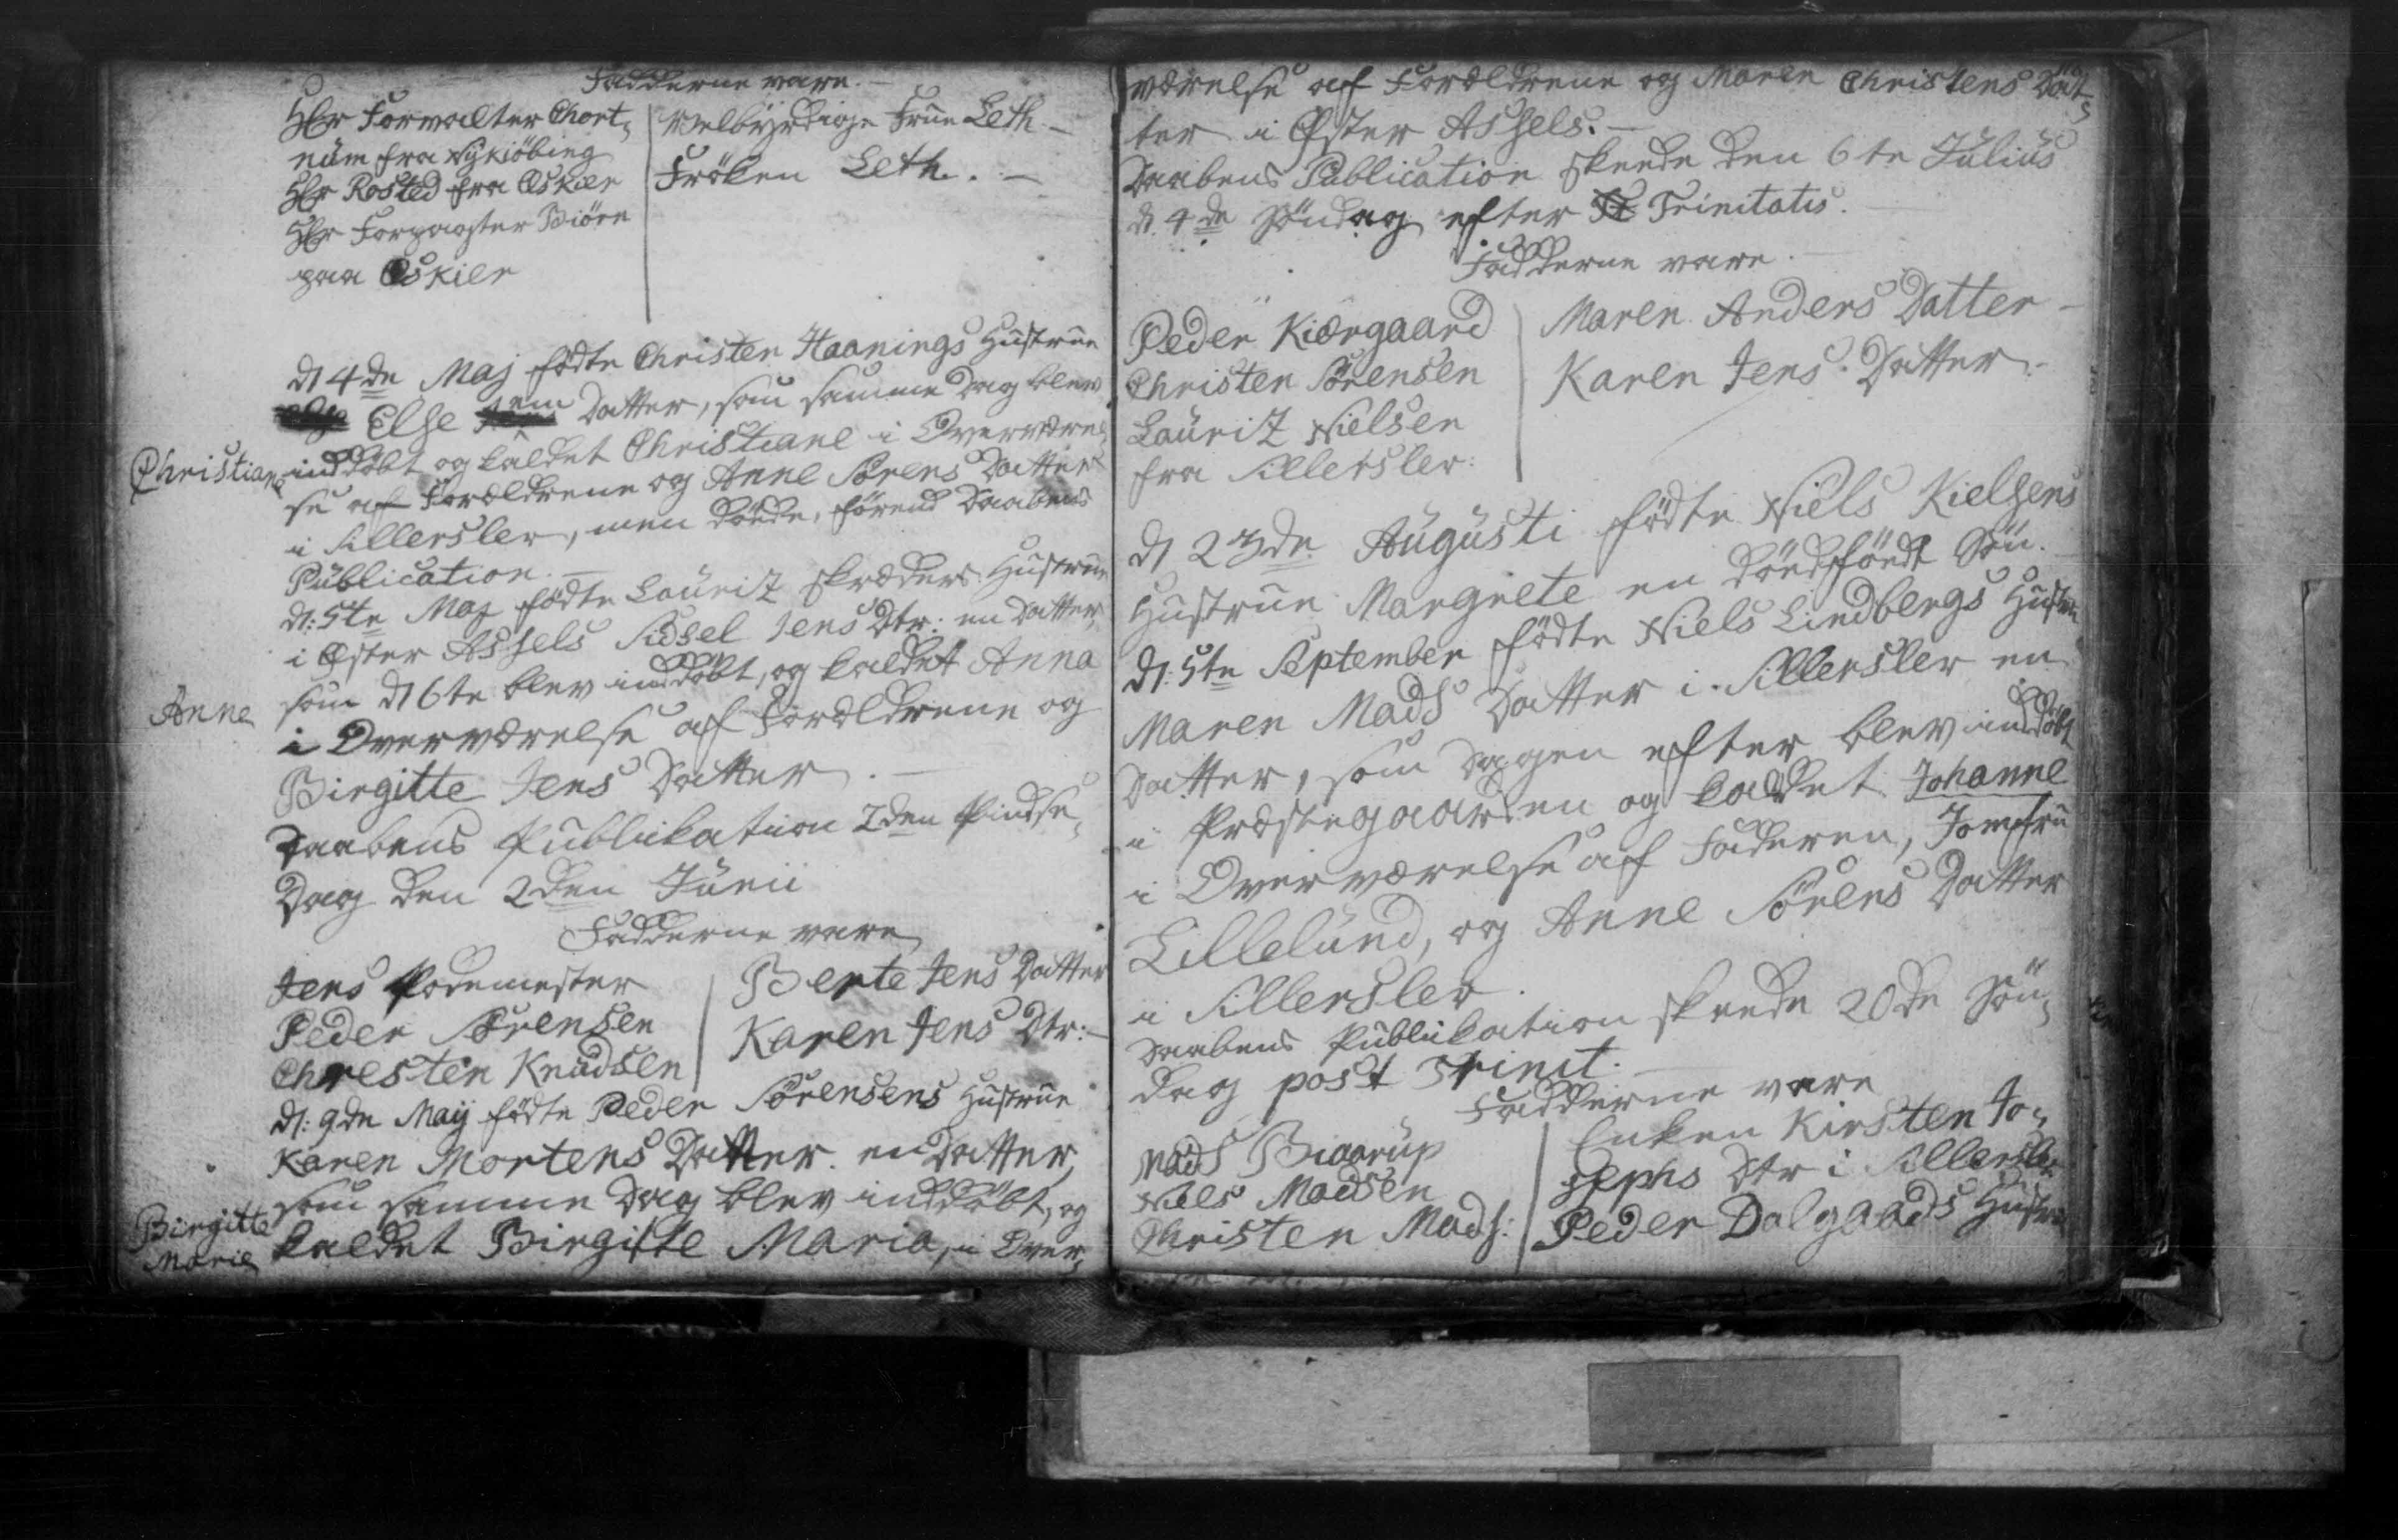 Fadderne vare.
Hr Forvalter Chort,
num fra Nykiöbing
Hr Rosted fra Öskier
Hr Forpagter Biörn
paa Öskier
Velbyrdige Frue Leth
Fröken Leth.
D 4de Maj födte Christen Haanings Hustrue
Else Datter, som samme Dag blev
Christiane
inddöbt og kaldet Christiane i Overværel,
se af Forældrene og Anne Sörens Datter
i Sillerslev, men döde, förend Daabens
Publication.
D: 5te Maj födte Lauritz Skræders Hustrue
i Øster Assels Sidsel Jens Dtr: en Datter,
Anne
som D 6te blev inddöbt, og kaldet Anna
i Overværelse af Forældrene og
Birgitte Jens Datter.
Daabens Publikation 2den Pindse,
Dag den 2den Junii
Fadderne vare
Jens Podemester
Peder Sörensen
Chresten Knudsen
Berte Jens Datter
Karen Jens Dtr:
D: 9de Maij födte Peder Sörensens Hustrue
Karen Mortens Datter en Datter,
som samme Dag blev inddöbt, og
Birgitte
Marie
kaldet Birgitte Maria, i Over,
værelse af Forældrene og Maren Christens Dat,
ter i Øster Assels.
Daabens Publication skeede den 6te Julius
d. 4de Söndag efter Trinitatis.
Fadderne vare.
Peder Kiærgaard
Christen Sörensen
Lauritz Nielsen
fra Sillerslev:
Maren Anders Datter
Karen Jens Datter
D 23de Augusti födte Niels Kielsens
Hustrue Margrete en dödföd Sön.
D: 5te September födte Niels Lindbergs Hustrue
Maren Mads Datter i Sillerslev en
Datter, som Dagen efter blev inddöbt
i Præstegaarden og kaldet Johanne
i Overværelse af Faderen, Jomfru
Lillelund, og Anne Sörens Datter
i Sillerslev.
Daabens Publikation skeede 20de Sön,
dag post Trinit.
Fadderne vare
Mads Biaarup
Niels Madsen
Christen Mads:
Enken Kirsten Jo,
sephs Dtr i Sillerslev
Peder Dalgaads Hustrue